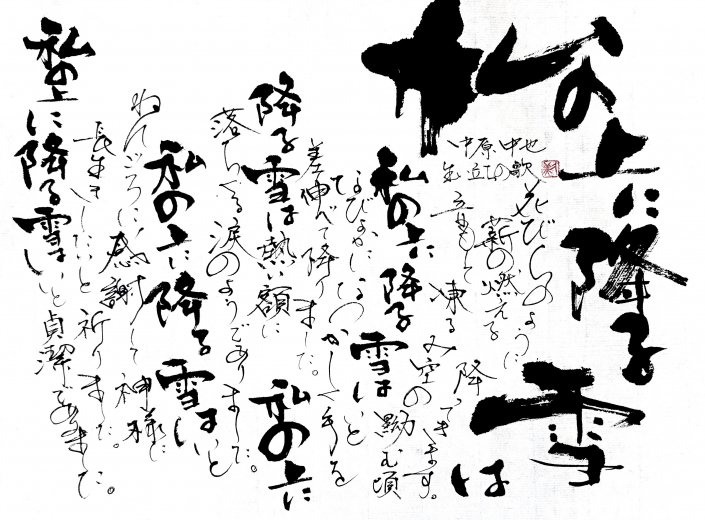 私の上に降る雪は
中原中也
生立の歌
花びらのように
降ってきます。
薪の燃える
音もして凍るみ空の黝む頃
私の上に降る雪はいと
なよびかになつかしく手を
差伸べて降りました。
私の上に
降る雪は熱い額に
落ちくる涙のようでありました。
私の上に降る雪はいと
ねんごろに感謝して神様に
長生きしたいと祈りました。
私の上に降る雪はいと貞潔でありました。